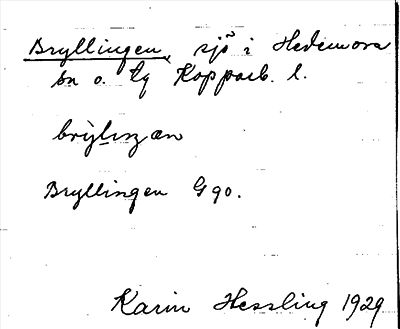 Bryllingen, sjö i Hedemora
sn o. tg Kopparb. l.
brỳlıŋæn
Bryllingen G 90.
Karin Hessling 1929